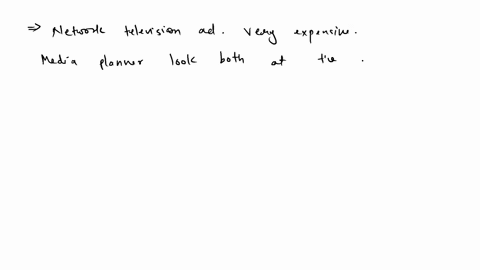 ⇒ Network television ad. very expensive.
Media planner look both at the .